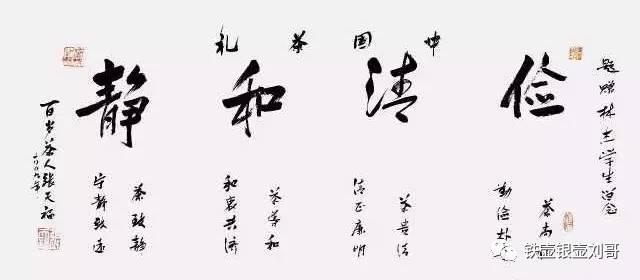 中国茶礼
俭清和静
题赠林志学生留念
茶尚
勤俭朴
茶贵清
清正廉明
茶导和
和衷共济
茶致静
宁静致远
百岁茶人张天福
二00九年
铁壶银壶刘哥